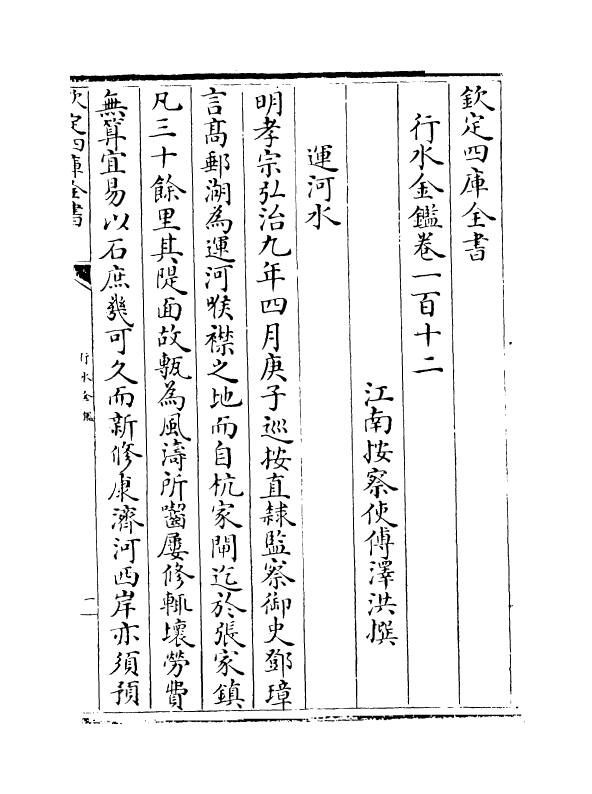 欽定四庫全書
行水金鑑卷一百十二
江南按察使傅澤洪撰
運河水
明孝宗弘治九年四月庚子巡按直隸監察御史鄧璋
言髙郵湖為運河喉襟之地而自杭家閘迄於張家鎮
凡三十餘里其隄面故甎為風濤所齧屢修輒壞勞費
無算宜易以石庶幾可久而新修康濟河西岸亦須預
欽定四庫全書
行水金鑑
一